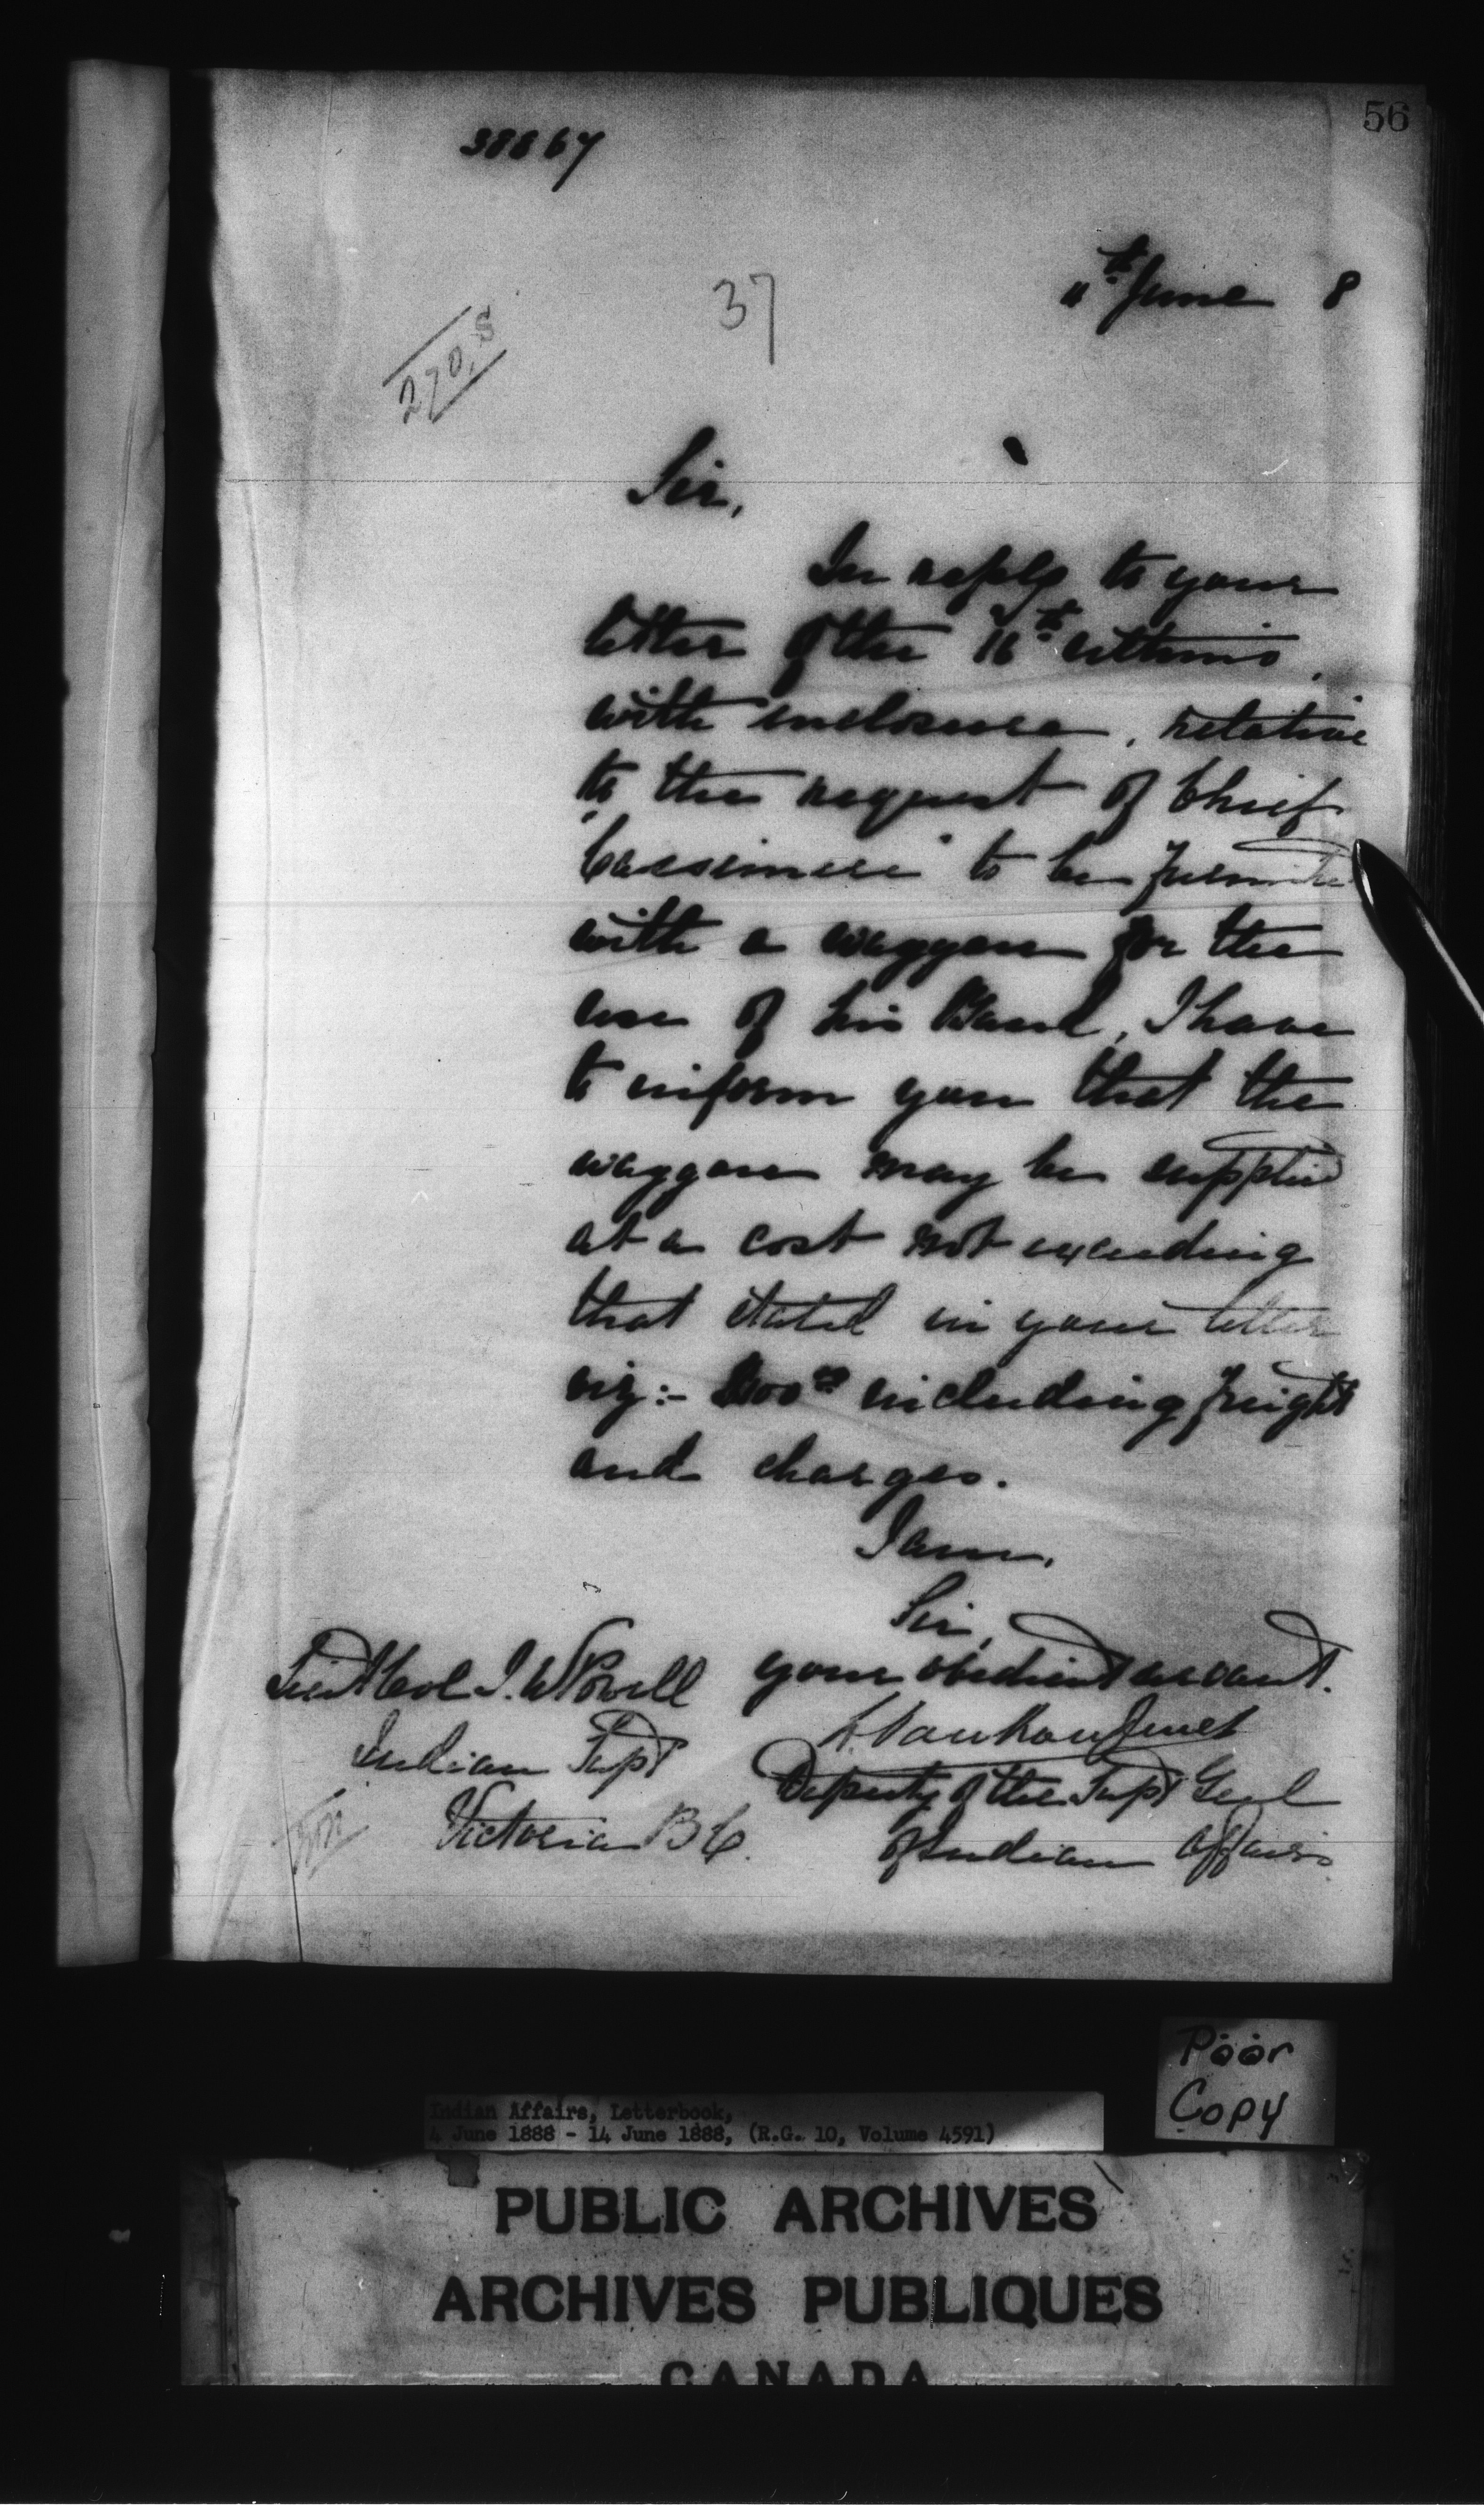 56
38867
11th June 8
37
270,5
Sir,
In reply to your
letter of the 16th ultimo
with enclosure, relative
to the request of Chief
"Cassimere" to be furnished
with a waggon for the
use of his Band, I have
to inform you that the
waggon may be supplied
at a cost not exceeding
that stated in your letter
viz:- including freight
and charges.
I am,
Sir,
your obedient servant.
L. Vankoughnet
Deputy of the Supt Genl
of Indian Affairs
Lieut Col I. W. Powell
Indian Supt
Victoria B C.
Poor
Copy
Indian Affairs, Letterbook,
4 June 1888 - 14 June 1888, (R.G. 10, Volume 4591)
PUBLIC ARCHIVES
ARCHIVES PUBLIQUES
CANADA